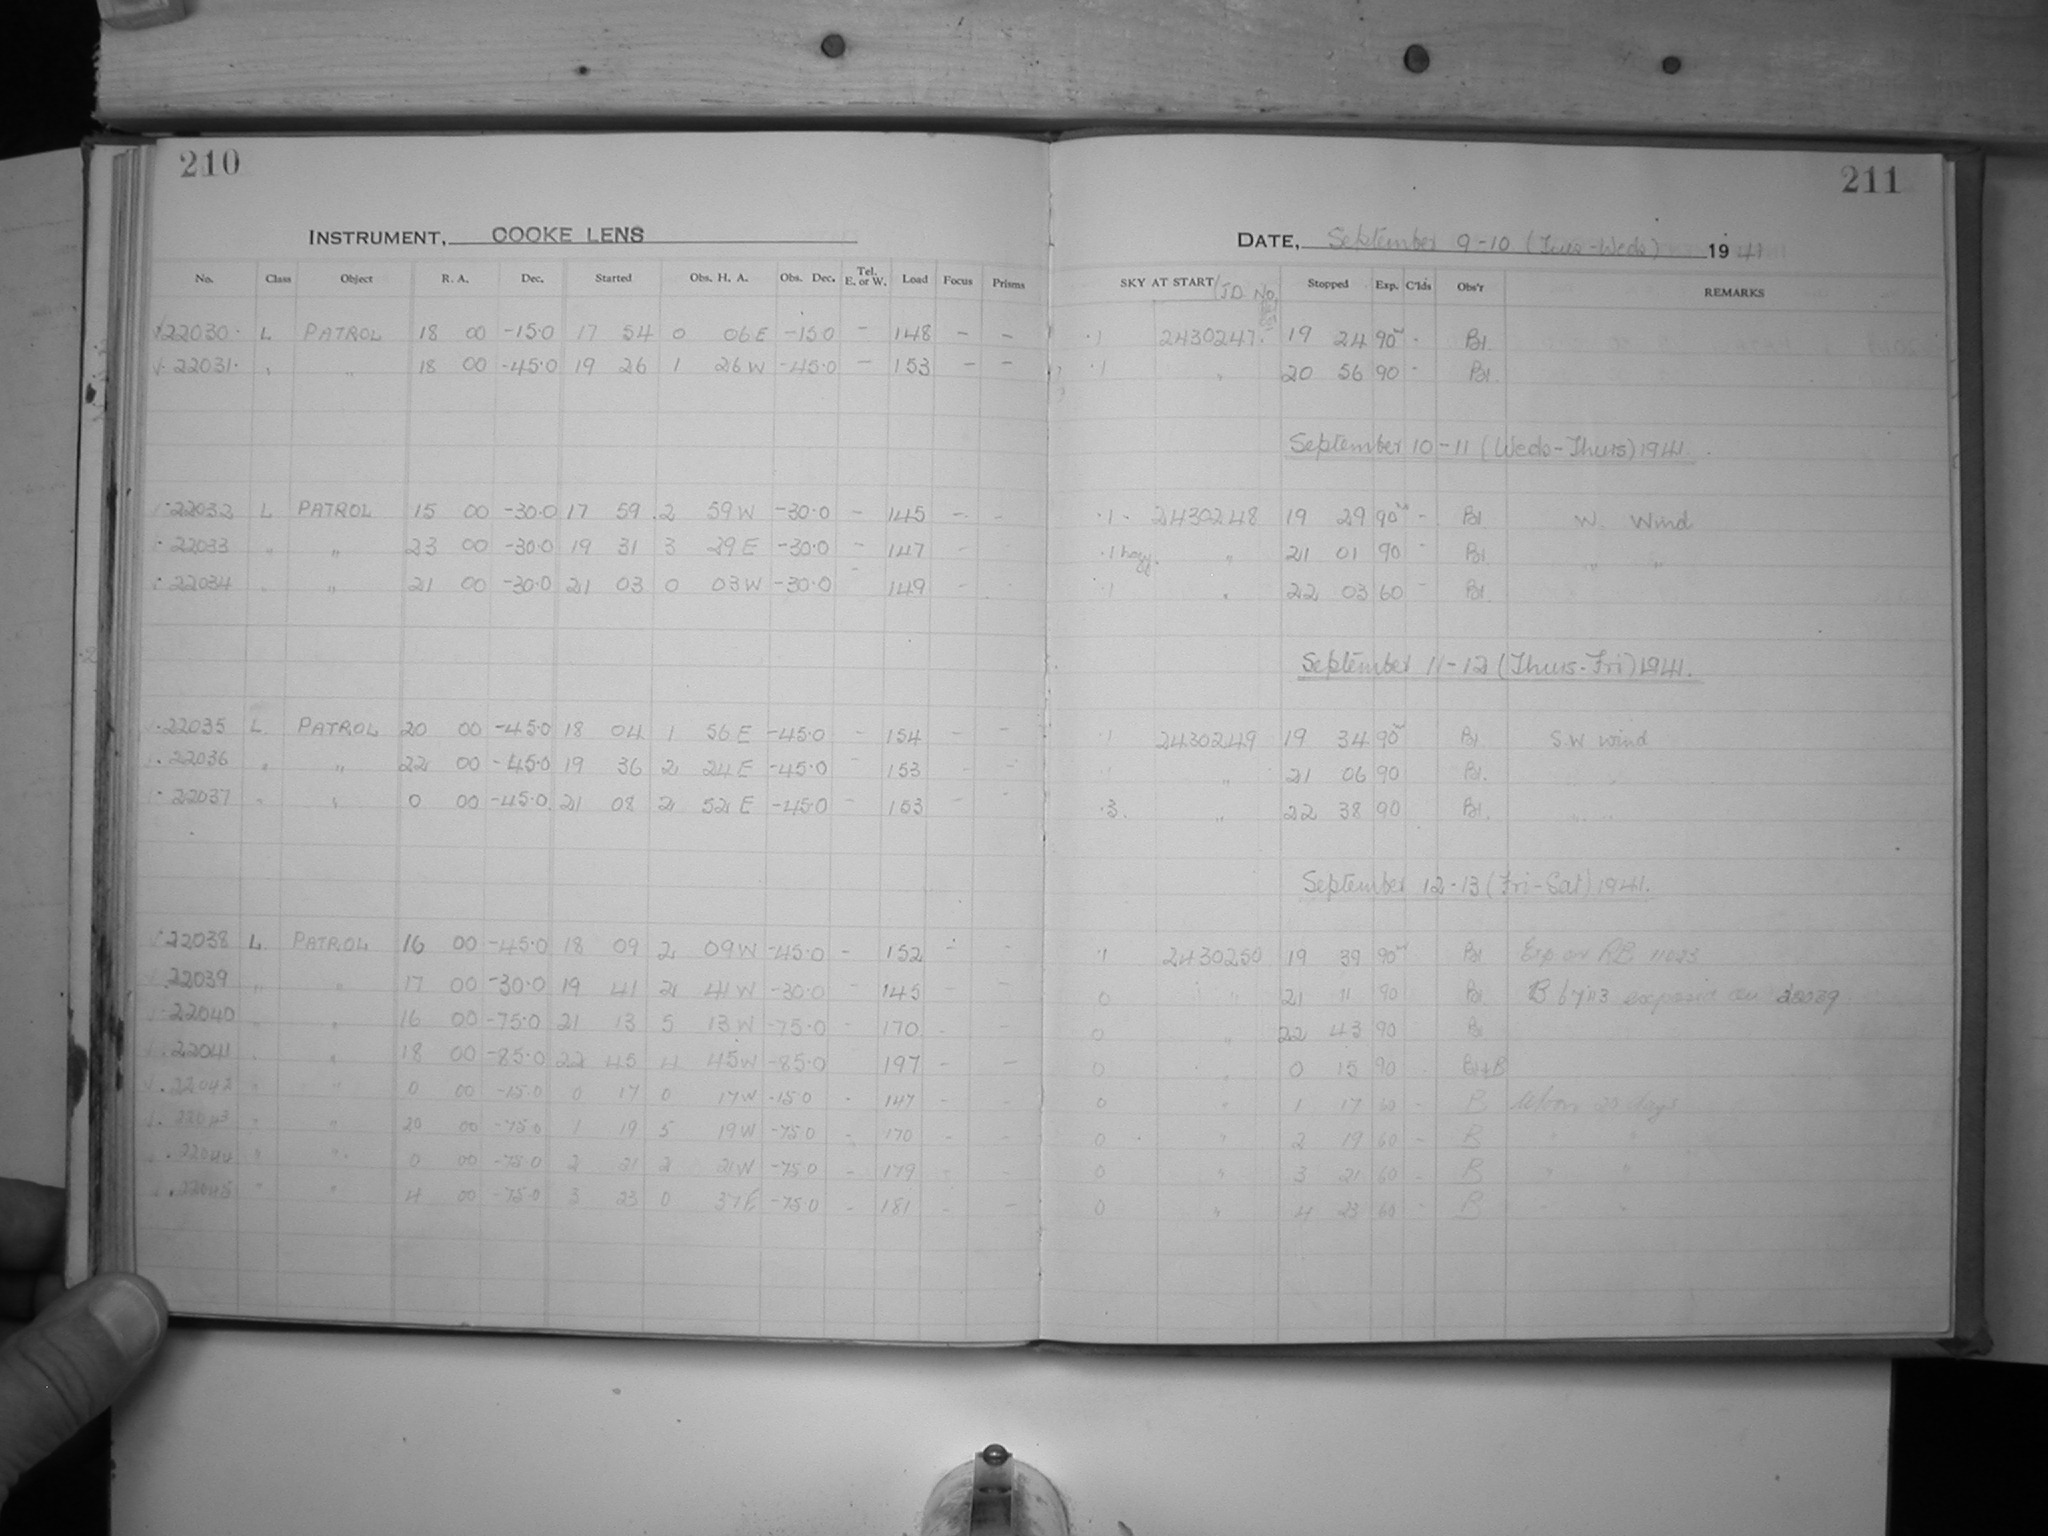 210
211
INSTRUMENT, COOKE LENS
DATE, September 9-10 (Tues-Weds) 1941
No. Class Object R. A. Dec. Started Obs. H. A. Obs. Dec. Tel. E. or W. Load Focus Prisms SKY AT START (JD No. Stopped Exp. C'lds Obs'r REMARKS
22030 L PATROL 18 00 -15.0 17 54 0 06E -15.0 - 148 - - .1 2430247. 19 24 90 - Bl
22031 " " 18 00 -45.0 19 26 1 26W -45.0 - 153 - - .1 " 20 56 90 - Bl.
September 10-11 (Weds-Thurs) 1941.
22032 L PATROL 15 00 -30.0 17 59 2 59W -30.0 - 145 - - .1 2430248 19 29 90m - Bl W. Wind
22033 " " 23 00 -30.0 19 31 3 29E -30.0 - 147 - .1 hazy. " 21 01 90 - Bl " "
22034 " " 21 00 -30.0 21 03 0 03W -30.0 149 - .1 " 22 03 60 - Bl.
September 11-12 (Thurs-Fri) 1941.
22035 L PATROL 20 00 -45.0 18 04 1 56E -45.0 - 154 - - .1 2430249 19 34 90m Bl S.W wind
22036 " " 22 00 -45.0 19 36 2 24E -45.0 - 153 - - .1 " 21 06 90 Bl. " "
22037 " " 0 00 -45.0 21 08 2 52E -45.0 - 153 - - .3. " 22 38 90 Bl. " "
September 12-13 (Fri-Sat) 1941.
22038 L PATROL 16 00 -45.0 18 09 2 09W -45.0 - 152 - - .1 2430250 19 39 90m Bl Exp on RB
22039 " " 17 00 -30.0 19 41 2 41W -30.0 - 145 - - 0 " 21 11 90 Bl. B exposed on 22039
22040 " " 16 00 -75.0 21 13 5 13W -75.0 - 170 - - 0 " 22 43 90 Bl
22041 " " 18 00 -85.0 22 45 4 45W -85.0 197 - - 0 " 0 15 90 Bl+B
22042 " " 0 00 -15.0 0 17 0 17W -15.0 - 147 - - 0 " 1 17 60 - B Moon days
22043 " " 20 00 -75.0 1 19 5 19W -75.0 - 170 - - 0 " 2 19 60 - B " "
22044 " " 0 00 -75.0 2 21 2 21W -75.0 - 179 - - 0 " 3 21 60 - B " "
22045 " " 4 00 -75.0 3 23 0 37E -75.0 - 181 - - 0 " 4 23 60 - B " "